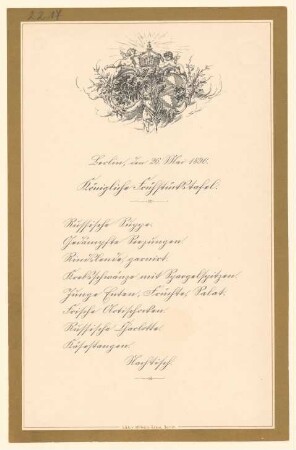 Berlin, den 28. Mai 1890.
Königliche Frühstückstafel.
Russische Suppe.
Gedämpfte Seezungen.
Rindslende, garnirt.
Krebsschwänze mit Spargelspitzen.
Junge Enten, Früchte, Salat.
Frische Artischocken.
Russische Charlotte.
Käsestangen.
Nachtisch.